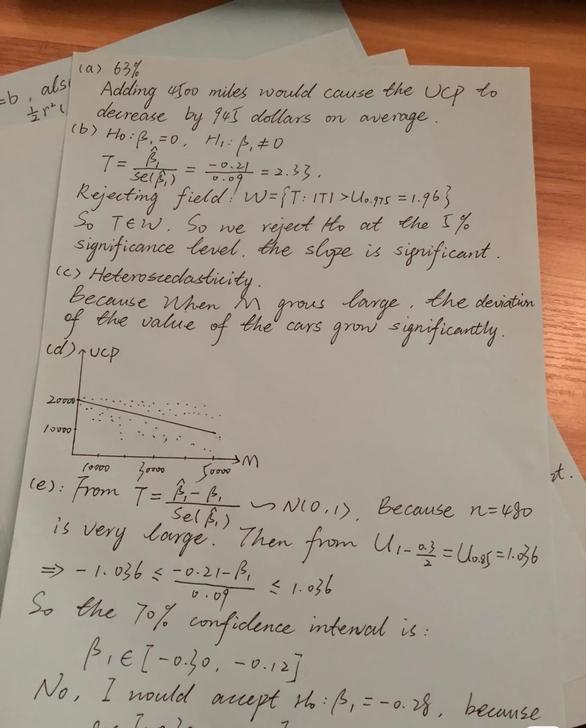 =b, als
½r²(
(a) 63%
Adding 4500 miles would cause the UCP to
decrease by 945 dollars on average.
(b) H₀: β₁=0, H₁: β₁≠0
T = β̂₁/Se(β̂₁) = -0.21/0.09 = 2.33.
Rejecting field: W={T: |T| > U₀.₉₇₅ = 1.96}
So T∈W. So we reject H₀ at the 5%
significance level, the slope is significant.
(c) Heteroscedasticity.
Because when M grows large, the deviation
of the value of the cars grow significantly.
(d) UCP
20000
10000
10000 30000 50000 M
(e): From T = (β̂₁ - β₁)/Se(β̂₁) ~ N(0,1), Because n=480
is very large. Then from U₁₋₀.₃/₂ = U₀.₈₅ = 1.036
⇒ -1.036 ≤ (-0.21-β₁)/0.09 ≤ 1.036
So the 70% confidence interval is:
β₁ ∈ [-0.30, -0.12]
No, I would accept H₀: β₁ = -0.28, because
t.